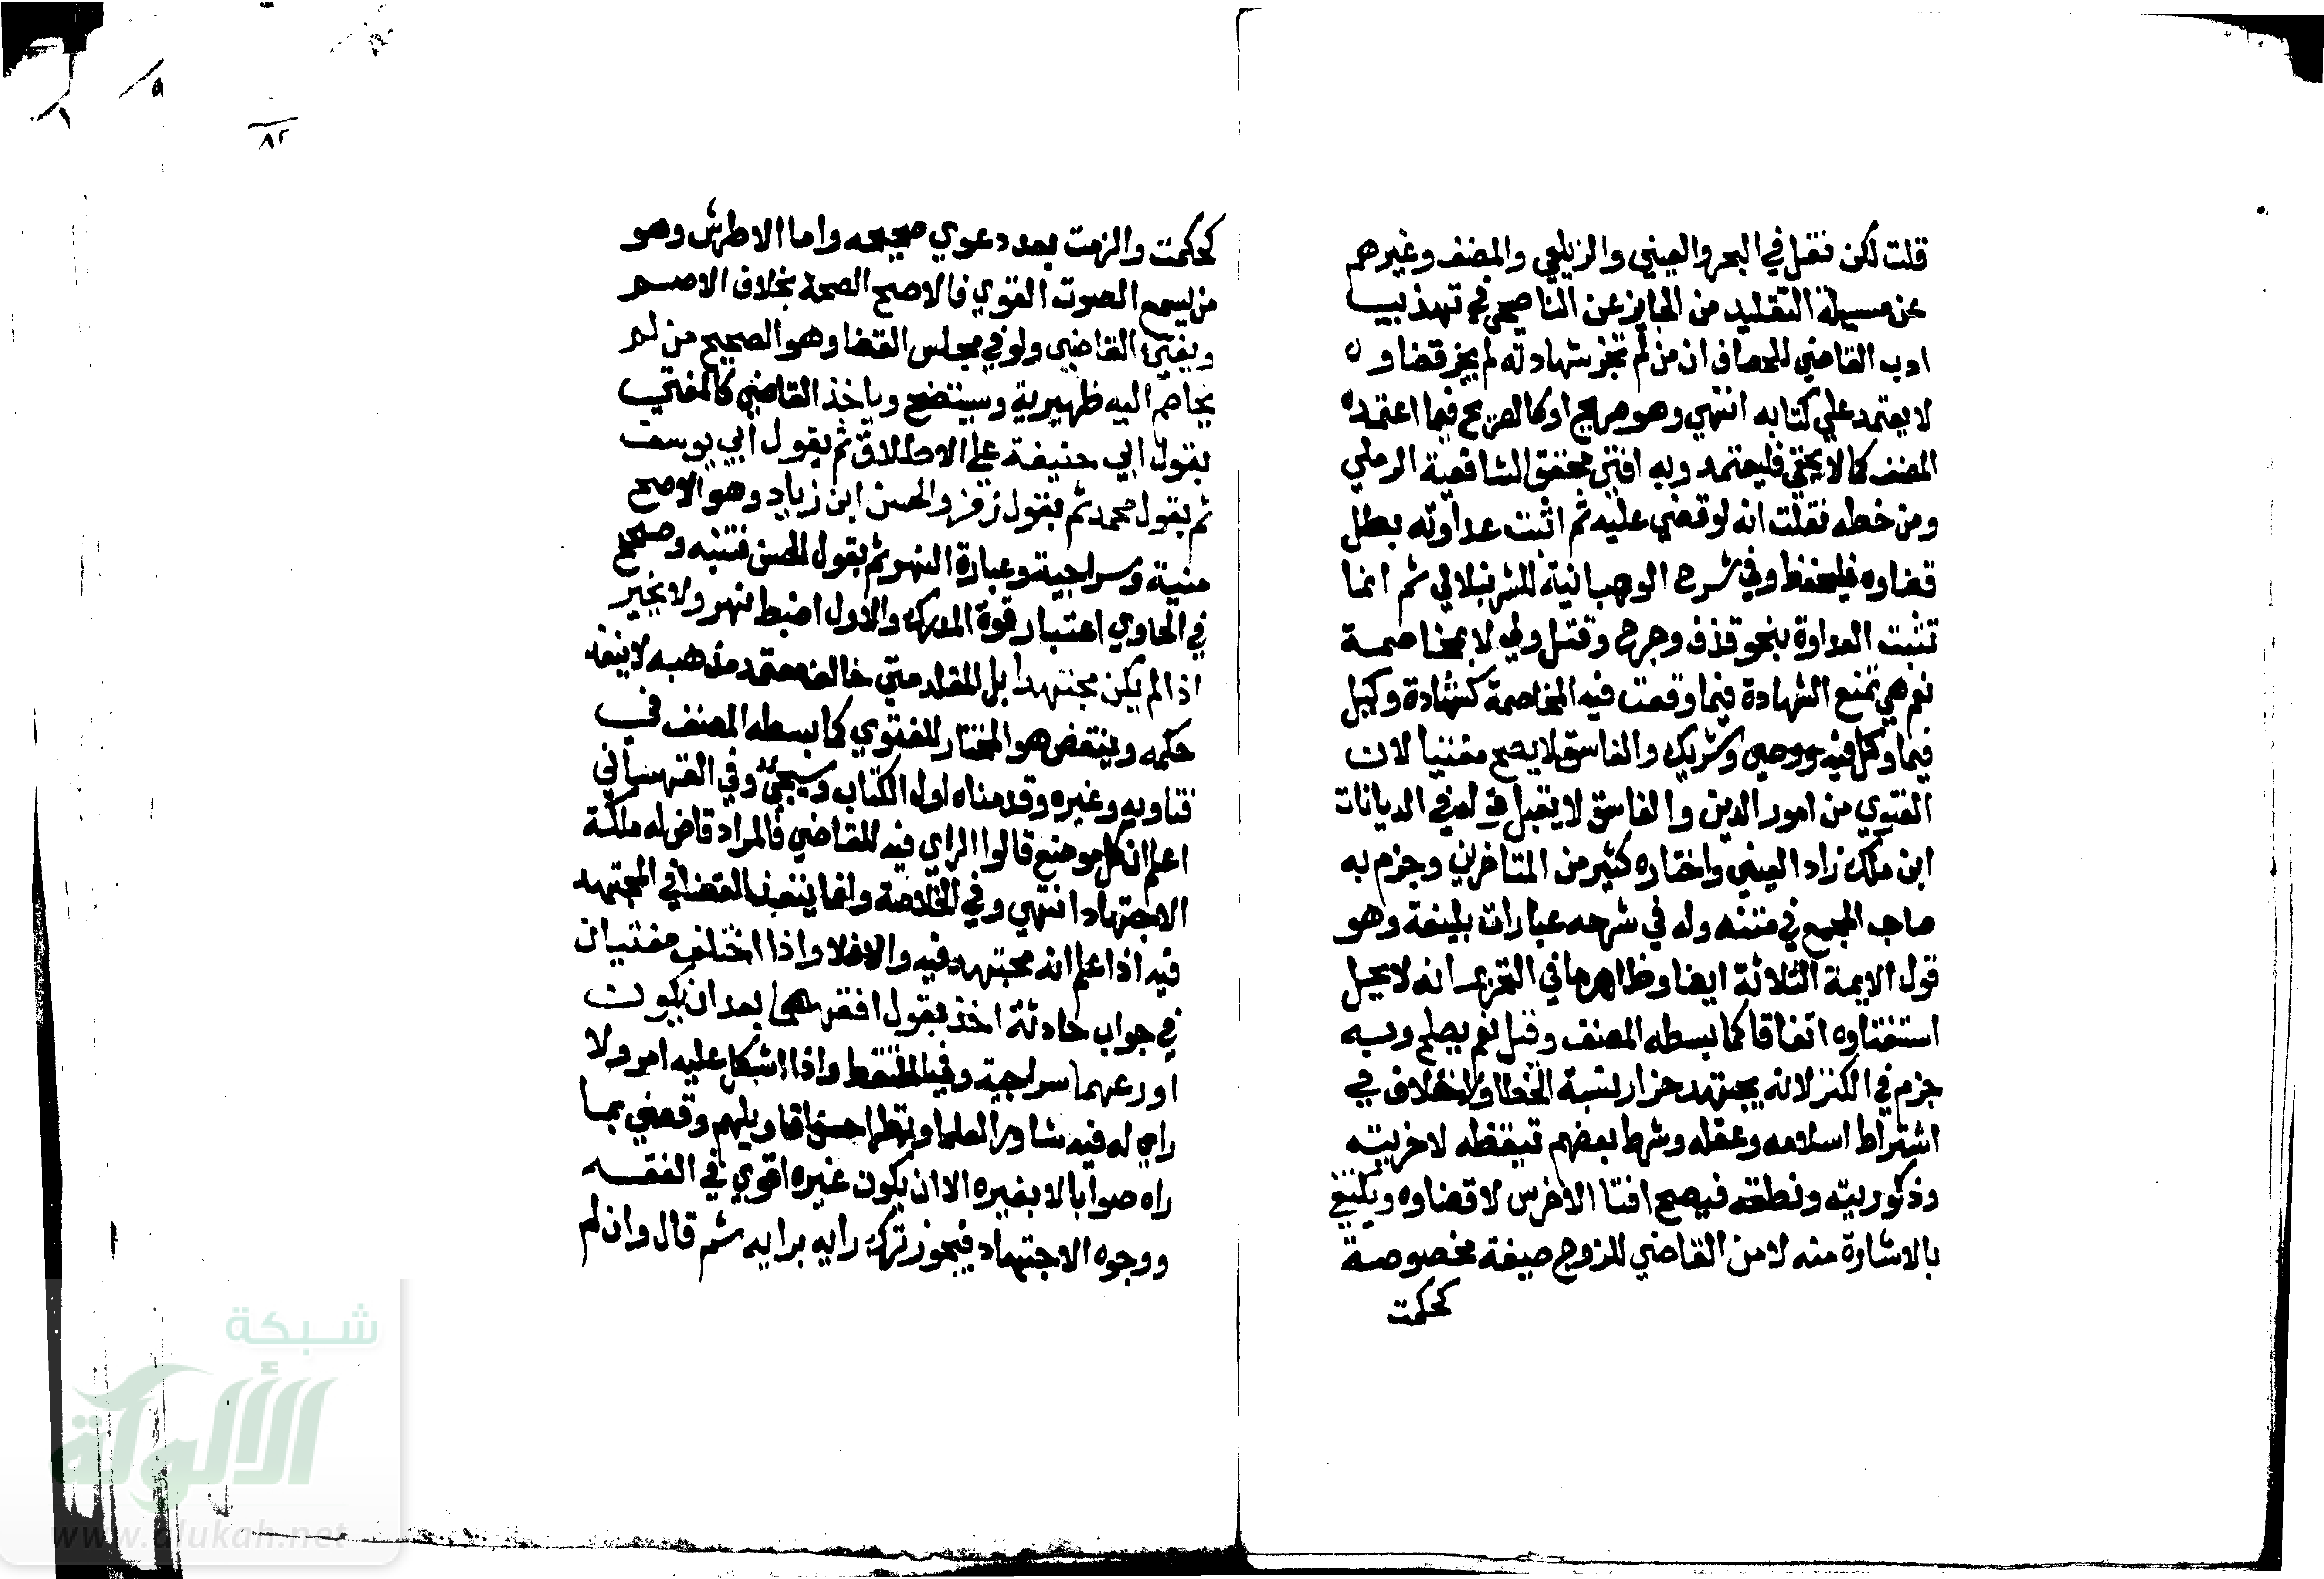 قلت لكن نقل في البحر والعيني والزيلعي والمصنف وغيرهم
عن مسيلة التقليد من الجاير عن الناصحي في تهذيب
ادب القاضي للخصاف ان من لم تجز شهادته لم يجز قضاوه
لا يعتمد علي كتابه انتهي وهو صريح او كالصريح فيما اعتمده
المصنف كما لا يخفي فليعتمد وبه افتي محقق الشافعية الرملي
ومن خطه نقلت انه لو قضي عليه ثم اثبت عداوته بطل
قضاوه فليحفظ وفي شرح الوهبانية للشرنبلالي ثم انما
تثبت العداوة بنحو قذف وجرح وقتل ولي لا بمخاصمة
نعم هي تمنع الشهادة فيما وقعت فيه المخاصمة كشهادة وكيل
فيما وكل فيه ووصي وشريك والفاسق لا يصح مفتيا لان
الفتوي من امور الدين والفاسق لا يقبل قوله في الديانات
ابن ملك زاد العيني واختاره كثير من المتاخرين وجزم به
صاحب المجمع في متنه وله في شرحه عبارات بليغة وهو
قول الايمة الثلاثة ايضا وظاهر ما في التحرير انه لا يحل
استفتاوه اتفاقا كما بسطه المصنف وقيل نعم يصلح وبه
جزم في الكنز لانه يجتهد حذار نسبة الخطا ولا خلاف في
اشتراط اسلامه وعقله وشرط بعضهم تيقظه لا حريته
وذكوريته ونطقه فيصح افتا الاخرس لا قضاوه ويكتفي
بالاشارة منه لا من القاضي للزوم صيغة مخصوصة
كحكمت
٨٢
كحكمت والزمت بعد دعوي صحيحه واما الاطرش وهو
من يسمع الصوت القوي فالاصح الصحة بخلاف الاصم
ويفتي القاضي ولو في مجلس القضا وهو الصحيح من لم
يخاصم اليه ظهيرية وسيتضح وياخذ القاضي كالمفتي
بقول ابي حنيفة علي الاطلاق ثم بقول ابي يوسف
ثم بقول محمد ثم بقول زفر والحسن ابن زياد وهو الاصح
منية وسراجية وعبارة النهر ثم بقول الحسن فتنبه وصحح
في الحاوي اعتبار قوة المدرك والاول اضبط نهر ولا يخير
اذا لم يكن مجتهدا بل المقلد متي خالف معتمد مذهبه لا ينفذ
حكمه وينقض هو المختار للفتوي كما بسطه المصنف في
فتاويه وغيره وقدمناه اول الكتاب وسيجئ وفي القهستاني
اعلم ان كل موضع قالوا الراي فيه للقاضي فالمراد قاض له ملكة
الاجتهاد انتهي وفي الخلاصة وانما ينفذ القضا في المجتهد
فيه اذا علم انه مجتهد فيه والا فلا واذا اختلف مفتيان
في جواب حادثة اخذ بقول افقههما بعد ان يكون
اورعهما سراجية وفي الملتقط واذا اشكل عليه امر ولا
راي له فيه شاور العلما ونظر احسن اقاويلهم وقضي بما
راه صوابا لا بغيره الا ان يكون غيره اقوي في الفقه
ووجوه الاجتهاد فيجوز ترك رايه برايه ثم قال وان لم
شبكة
الألوكة
www.alukah.net